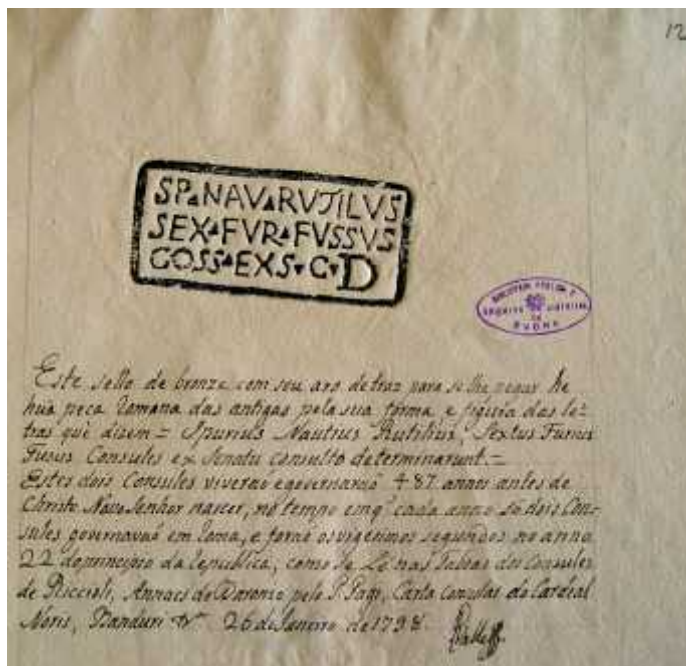 12
SP▴NAV▴RVTILVS
SEX▴FVR▴FVSSVS
COSS▴EXS▾C▾D
BIBLIOTECA PUBLICA E
ARQUIVO DISTRITAL
DE
EVORA
Este sello de bronze com seu aro detraz para se lhe pegar he
huã peca Romana das antigas pela sua forma e figura das le-
tras que dizem = Spurius Nautius Rutilius, Sextus Furius
Fusus Consules ex Senatu consulto determinarunt. =
Estes dois Consules viverão e governarão 487 annos antes de
Christo Nosso Senhor nascer, no tempo em q cada anno so dois Con-
sules governavaõ em Roma, e foraõ os vigesimos segundos no anno
22 do principio da Republica, como se Lê nas Taboas dos Consules
de Riccioli, Annaes de Baronio pelo P. Pagi, Carta Consular do Cardeal
Noris, Banduri &c. 26 de Janeiro de 1798.